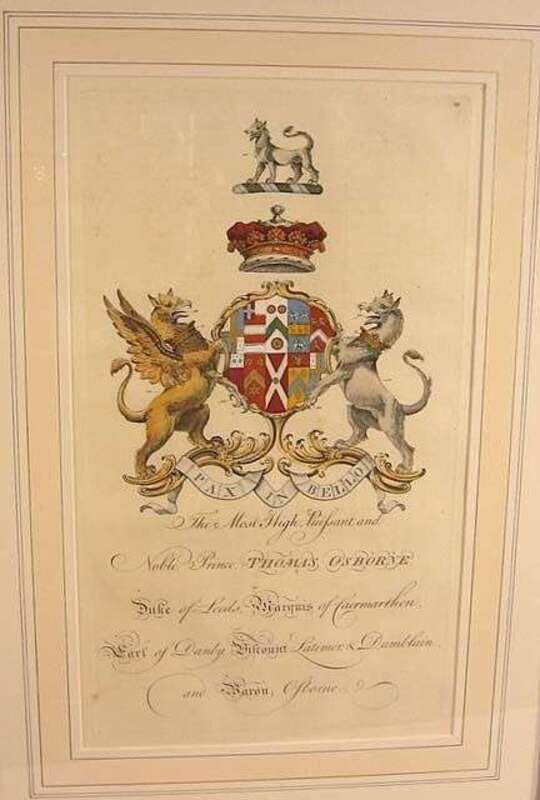 PAX IN BELLO
The Most High, Puissant, and
Noble Prince, THOMAS OSBORNE
Duke of Leeds, Marquis of Caermarthen,
Earl of Danby Viscount Latimer, & Dumblain,
and Baron, Osborne.